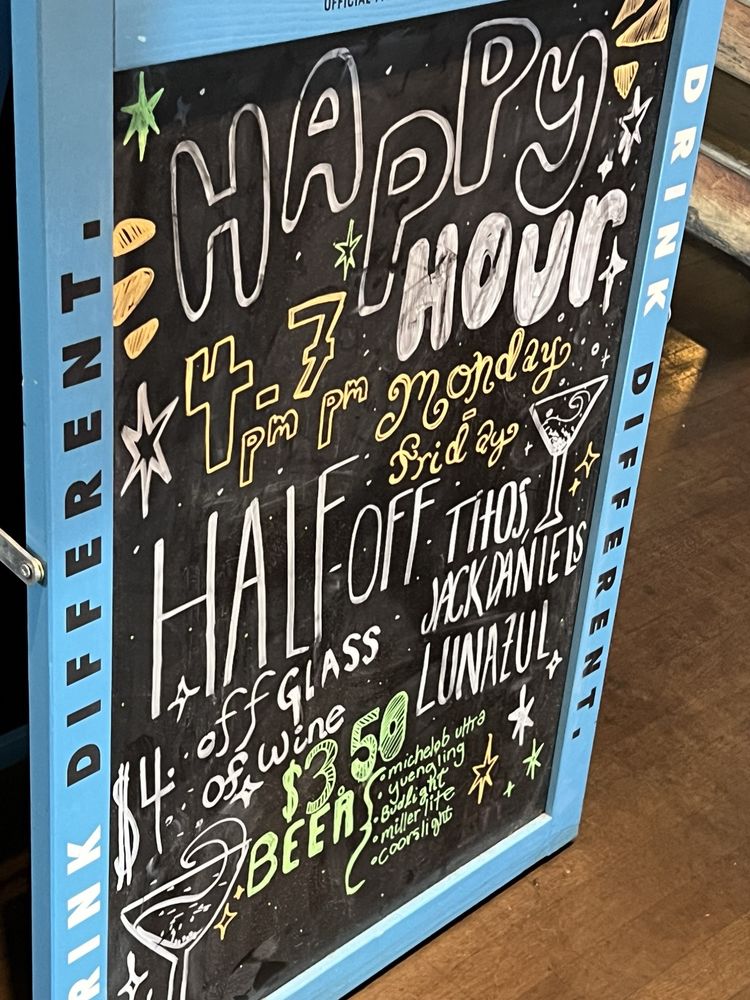 OFFICIAL
HAPPY
HOUR
4pm-7pm Monday
- Friday
HALF OFF TITOS,
JACK DANIELS
LUNAZUL
$4 off GLASS
of wine
$3.50
BEER
• michelob ultra
• yuengling
• Budlight
• miller lite
• coorslight
DRINK DIFFERENT.
RINK DIFFERENT.